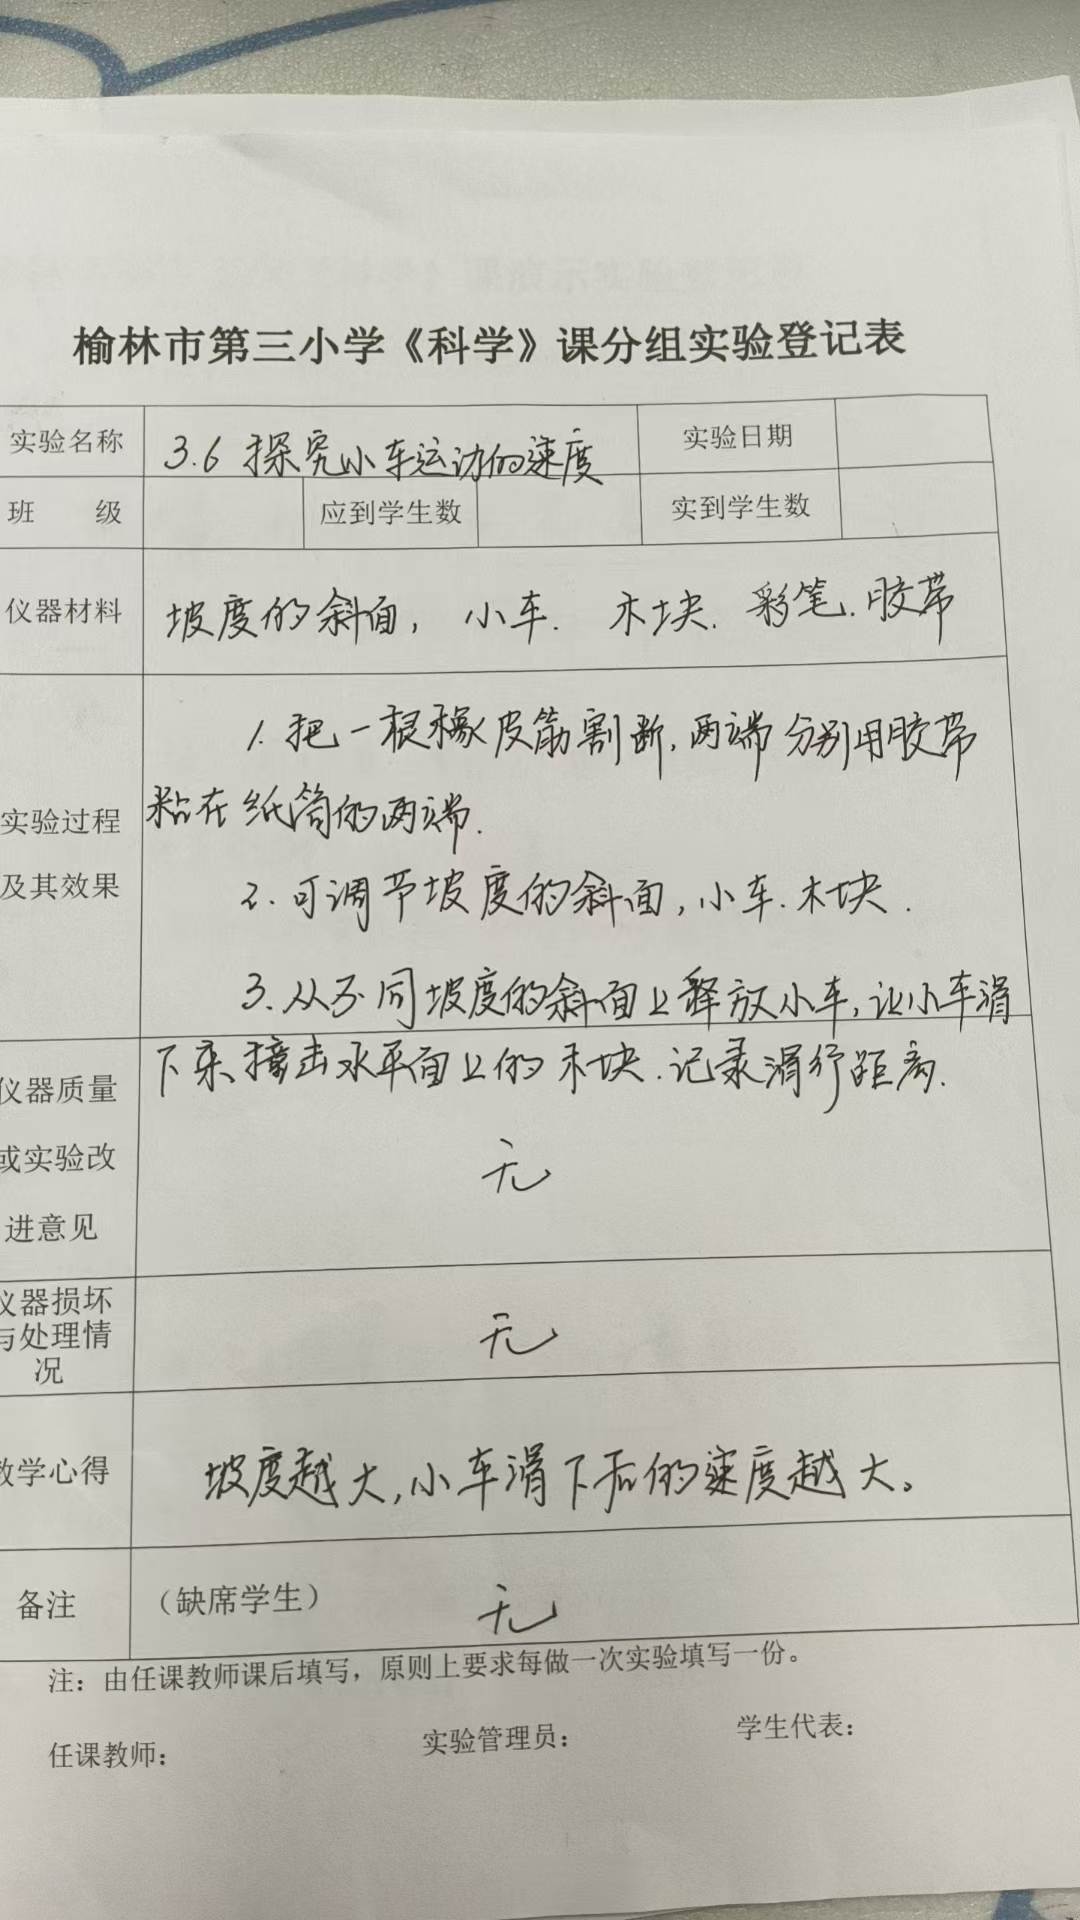 榆林市第三小学《科学》课分组实验登记表
实验名称 3.6 探究小车运动的速度 实验日期
班 级 应到学生数 实到学生数
仪器材料 坡度的斜面, 小车. 木块. 彩笔. 胶带
1. 把一根橡皮筋割断, 两端分别用胶带
实验过程 粘在纸筒的两端.
及其效果 2. 可调节坡度的斜面, 小车. 木块.
3. 从不同坡度的斜面上释放小车, 让小车滑
仪器质量 下来撞击水平面上的木块. 记录滑行距离.
或实验改 无
进意见
仪器损坏
与处理情 无
况
教学心得 坡度越大, 小车滑下后的速度越大。
备注 (缺席学生) 无
注：由任课教师课后填写，原则上要求每做一次实验填写一份。
任课教师： 实验管理员： 学生代表：